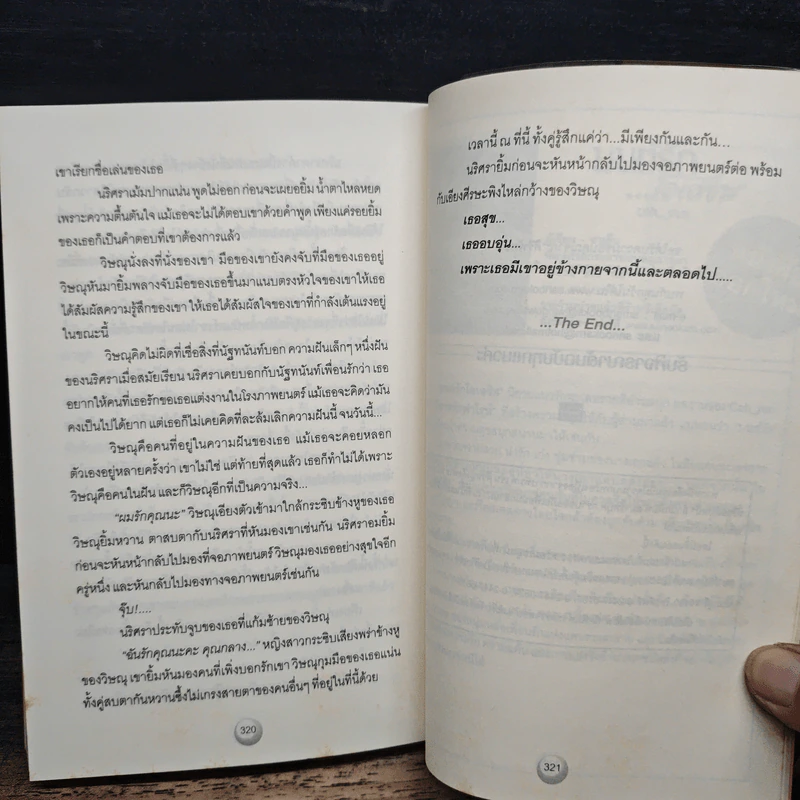 เขาเรียกชื่อเล่นของเธอ
นริศราเม้มปากแน่น พูดไม่ออก ก่อนจะเผยอยิ้ม น้ำตาไหลหยด
เพราะความตื้นตันใจ แม้เธอจะไม่ได้ตอบเขาด้วยคำพูด เพียงแค่รอยยิ้ม
ของเธอก็เป็นคำตอบที่เขาต้องการแล้ว
วิษณุนั่งลงที่นั่งของเขา มือของเขายังคงจับที่มือของเธออยู่
วิษณุหันมายิ้มพลางจับมือของเธอขึ้นมาแนบตรงหัวใจของเขาให้เธอ
ได้สัมผัสความรู้สึกของเขา ให้เธอได้สัมผัสใจของเขาที่กำลังเต้นแรงอยู่
ในขณะนี้
วิษณุคิดไม่ผิดที่เชื่อสิ่งที่นัฐทนันท์บอก ความฝันเล็กๆ หนึ่งฝัน
ของนริศราเมื่อสมัยเรียน นริศราเคยบอกกับนัฐทนันท์เพื่อนรักว่า เธอ
อยากให้คนที่เธอรักขอเธอแต่งงานในโรงภาพยนตร์ แม้เธอจะคิดว่ามัน
คงเป็นไปได้ยาก แต่เธอก็ไม่เคยคิดที่จะล้มเลิกความฝันนี้ จนวันนี้...
วิษณุคือคนที่อยู่ในความฝันของเธอ แม้เธอจะคอยหลอก
ตัวเองอยู่หลายครั้งว่า เขาไม่ใช่ แต่ท้ายที่สุดแล้ว เธอก็ทำไม่ได้เพราะ
วิษณุคือคนในฝัน และก็วิษณุอีกที่เป็นความจริง...
“ผมรักคุณนะ” วิษณุเอียงตัวเข้ามาใกล้กระซิบข้างหูของเธอ
วิษณุยิ้มหวาน ตาสบตากับนริศราที่หันมองเขาเช่นกัน นริศราอมยิ้ม
ก่อนจะหันหน้ากลับไปมองที่จอภาพยนตร์ วิษณุมองเธออย่างสุขใจอีก
ครู่หนึ่ง และหันกลับไปมองทางจอภาพยนตร์เช่นกัน
จุ๊บ!....
นริศราประทับจูบของเธอที่แก้มซ้ายของวิษณุ
“ฉันรักคุณนะคะ คุณกลาง...” หญิงสาวกระซิบเสียงพร่าข้างหู
ของวิษณุ เขายิ้มหันมองคนที่เพิ่งบอกรักเขา วิษณุกุมมือของเธอแน่น
ทั้งคู่สบตากันหวานซึ้งไม่เกรงสายตาของคนอื่นๆ ที่อยู่ในที่นี้ด้วย
320
เวลานี้ ณ ที่นี้ ทั้งคู่รู้สึกแค่ว่า...มีเพียงกันและกัน...
นริศรายิ้มก่อนจะหันหน้ากลับไปมองจอภาพยนตร์ต่อ พร้อม
กับเอียงศีรษะพิงไหล่กว้างของวิษณุ
เธอสุข...
เธออบอุ่น...
เพราะเธอมีเขาอยู่ข้างกายจากนี้และตลอดไป.....
...The End...
321